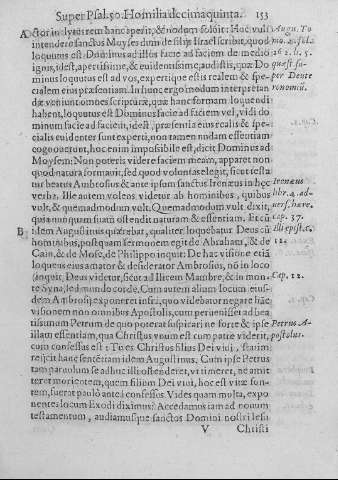 Super Psal. 50. Homilia decimaquinta. 153
intendere sanctus Moyses dum de filijs Israel scribit, quod
loquutus est Dominus ad illos facie ad faciem de medio
ignis, idest, apertissime, & euidentissime, audistis, quæ Do
minus loquutus est ad vos, expertique estis realem & spe-
cialem eius præsentiam. In hunc ergo modum interpretan
dæ veniunt omnes scripturæ, quæ hanc formam loquendi
habent, loquutus est Dominus facie ad faciem vel, vidi do
minum facie ad faciem, idest, præsentia eius realis & spe-
cialis euidenter sunt experti, non tamen nudam essentiam
cognouerunt, hoc enim impossibile est, dicit Dominus ad
Moysem: Non poteris videre faciem meam, apparet non
quod natura formauit, sed quod voluntas elegit, sicut testa
tur beatus Ambrosius & ante ipsum sanctus Irenæus in hęc
verba. Ille autem volens videtur ab hominibus, quibus
vult, & quemadmodum vult. Quemadmodum vult dixit,
quia nunquam suam ostendit naturam & essentiam. Et cū
B idem Augustinus quærebat, qualiter loquebatur Deus cū
hominibus, postquam sermonem egit de Abraham, & de
Cain, & de Mose, de Philippo inquit: De hac visione etiā
loquens eius amator & desiderator Ambrosius, nō in loco
(inquit) Deus videtur, sicut ad Ilicem Mambre, & in mon-
te Syna, sed mundo corde. Cum autem alium locum eius-
dem Ambrosij exponeret insra, quo videbat negare hāc
visionem non omnibus Apostolis, cum peruenisset ad bea
tissimum Petrum de quo poterat suspicari ne forte & ipse
illam essentiam, qua Christus vnum est cum patre viderit,
cum confessus est: Tu es Christus filius Dei viui, statim
reijcit hanc sententiam idem Augustinus. Cum ipse Petrus
tam paruulum se adhuc illi ostenderet, vt timeret, ne amit
teret morientem, quem filium Dei viui, hoc est vitæ fon-
tem, fuerat paulo ante confessus. Vides quam multa, expo
nentes locum Exodi diximus? Accedamus iam ad nouum
testamentum, audiamusque sanctos Domini nostri Iesu
V Christi
Augu. To
26 l. 5.
quæst. su-
per Deute
ronomiū.
Irenæus
libr. 4. ad-
uers. hære.
cap. 37.
12.
Cap. 12.
Petrus A-
postolus.